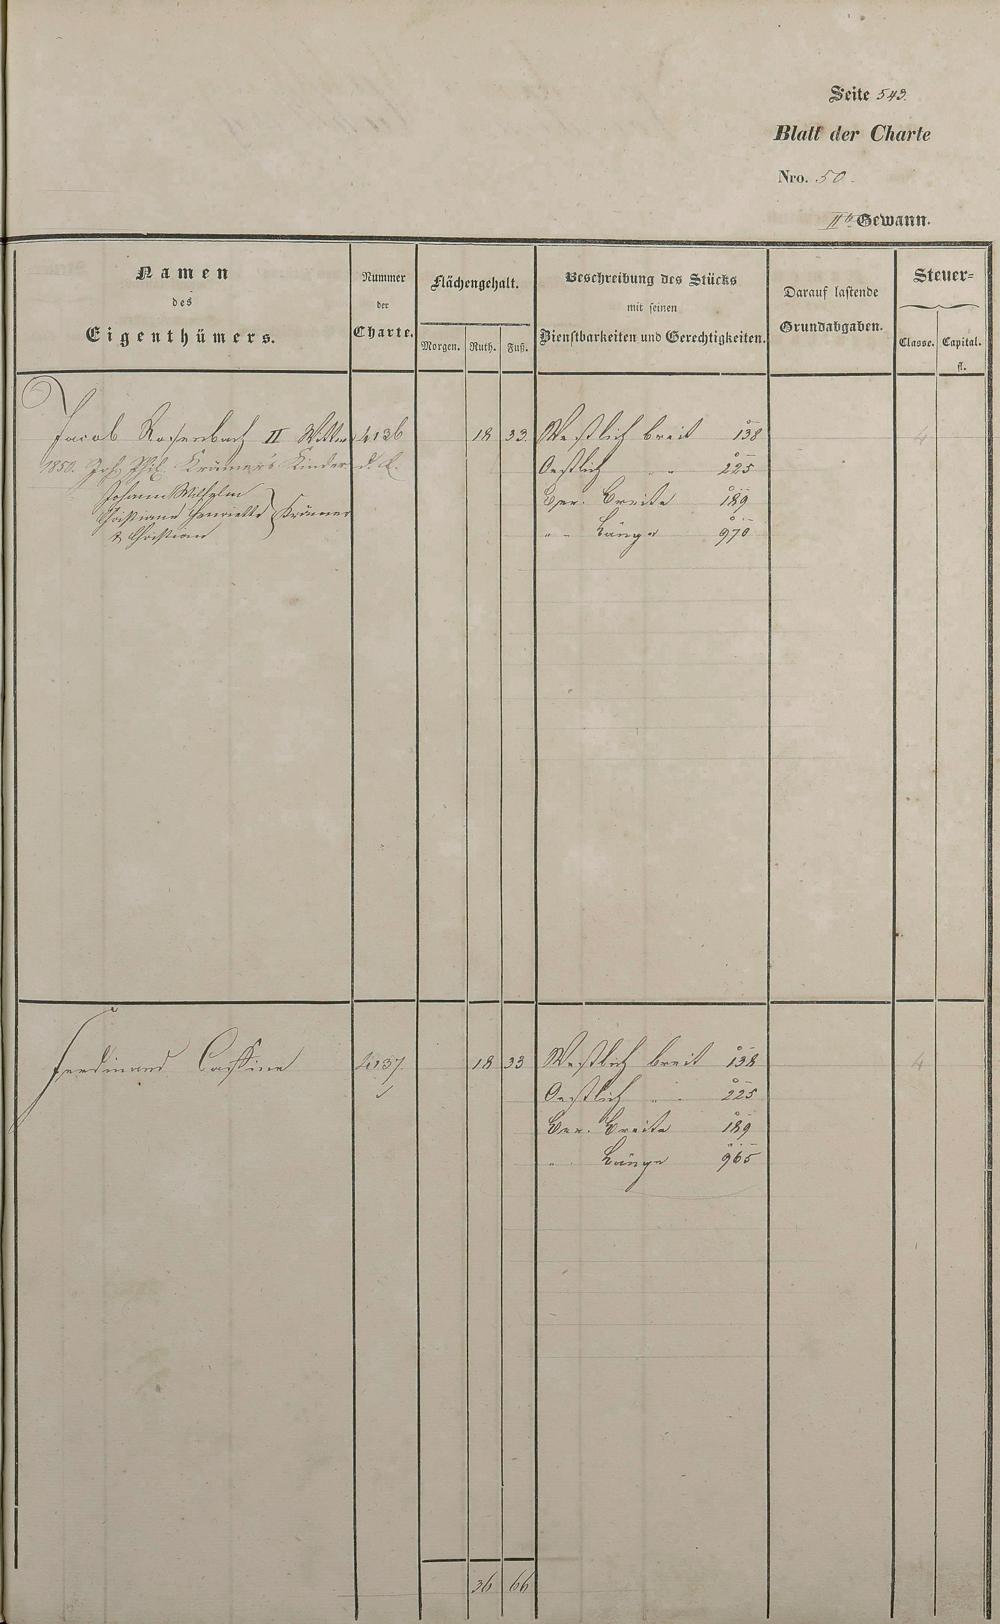 Seite 543.
Blatt der Charte
Nro. 50.
IIte Gewann.
Namen
des
Eigenthümers.
Nummer
der
Charte.
Flächengehalt.
Morgen. Ruth. Fuß.
Beschreibung des Stücks
mit seinen
Dienstbarkeiten und Gerechtigkeiten.
Darauf lastende
Grundabgaben.
Steuer-
Classe. Capital.
fl.
Jacob Rosenbach II Wittwe 4136 18 33. Westlich breit 138 4
1850. Joh. Phil. Krämer's Kinder d. A. Oestlich " " 225
Johann Wilhelm
Christiane Henriette Krämer Ver. Breite 189
& Christian " " Länge 970
Ferdinand Cassine 4137. 18 33 Westlich breit 138 4
Oestlich " " 225
Ver. Breite 189
" Länge 965
36 66